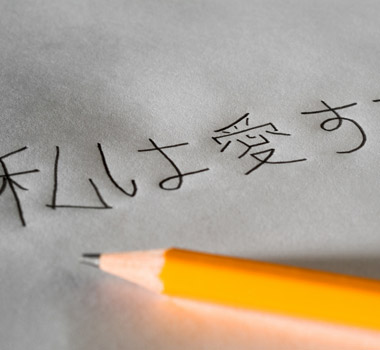 私は愛す